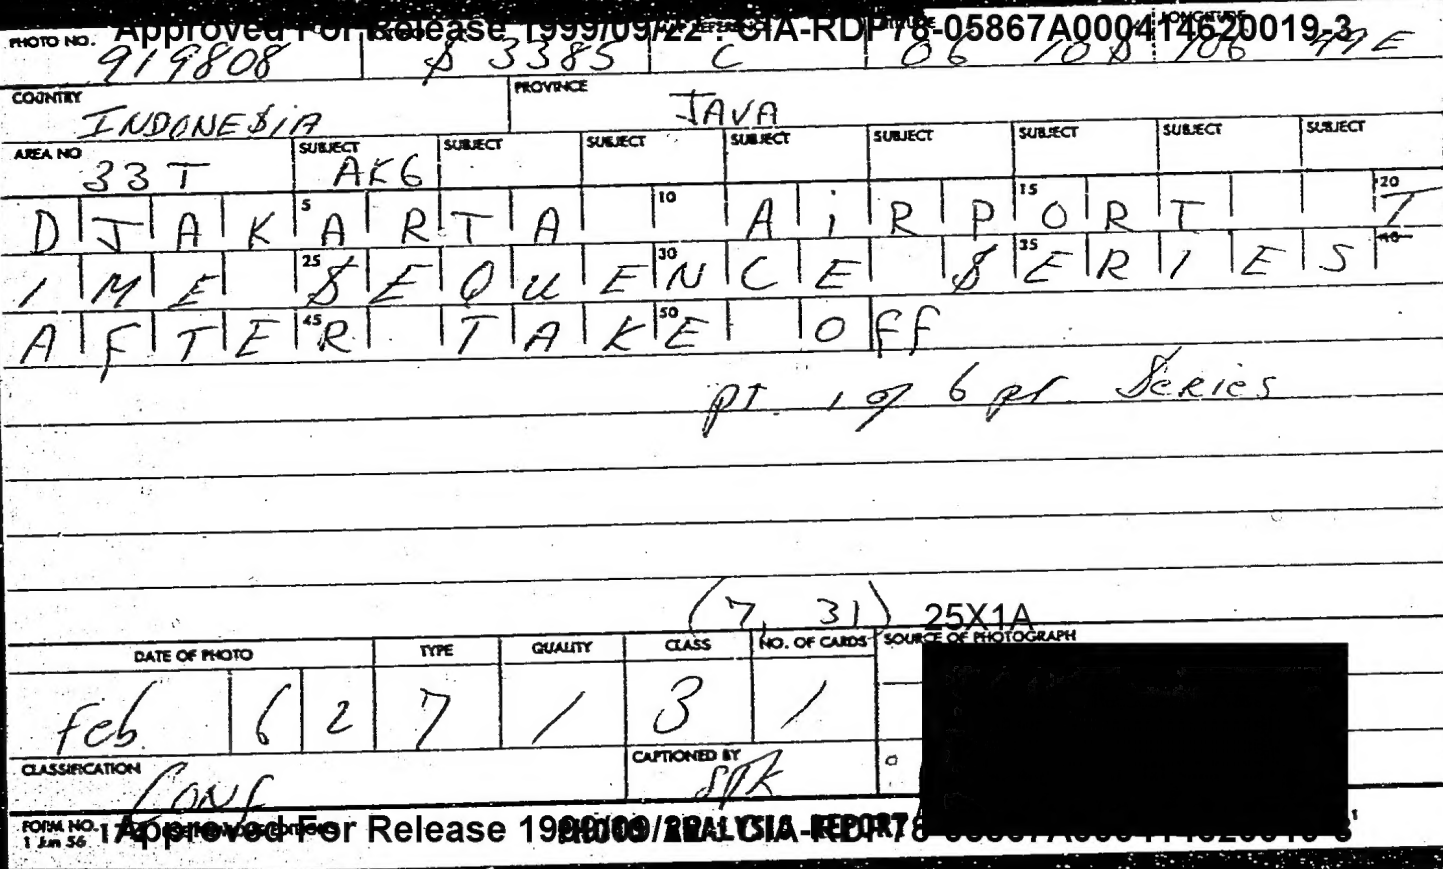 Approved For Release 1999/09/22 : CIA-RDP78-05867A000414620019-3
PHOTO NO. 919808 $3385 C 06 10 S 106 49 E
COUNTRY INDONESIA PROVINCE JAVA
AREA NO 33T SUBJECT AK6 SUBJECT SUBJECT SUBJECT SUBJECT SUBJECT SUBJECT SUBJECT
5 10 15 20
DJAKARTA AiRPORT T
25 30 35 40
IME SEQUENCE SERIES
45 50
AFTER TAKE Off
pt. 1 of 6 pt. Series
(7, 31) 25X1A
DATE OF PHOTO TYPE QUALITY CLASS NO. OF CARDS SOURCE OF PHOTOGRAPH
Feb 6 2 7 1 3 1
CLASSIFICATION CONF CAPTIONED BY
FORM NO. 1 Jun 56
Approved For Release 1999/09/22 : CIA-RDP78-05867A000414620019-3
PHOTO ANALYSIS REPORT